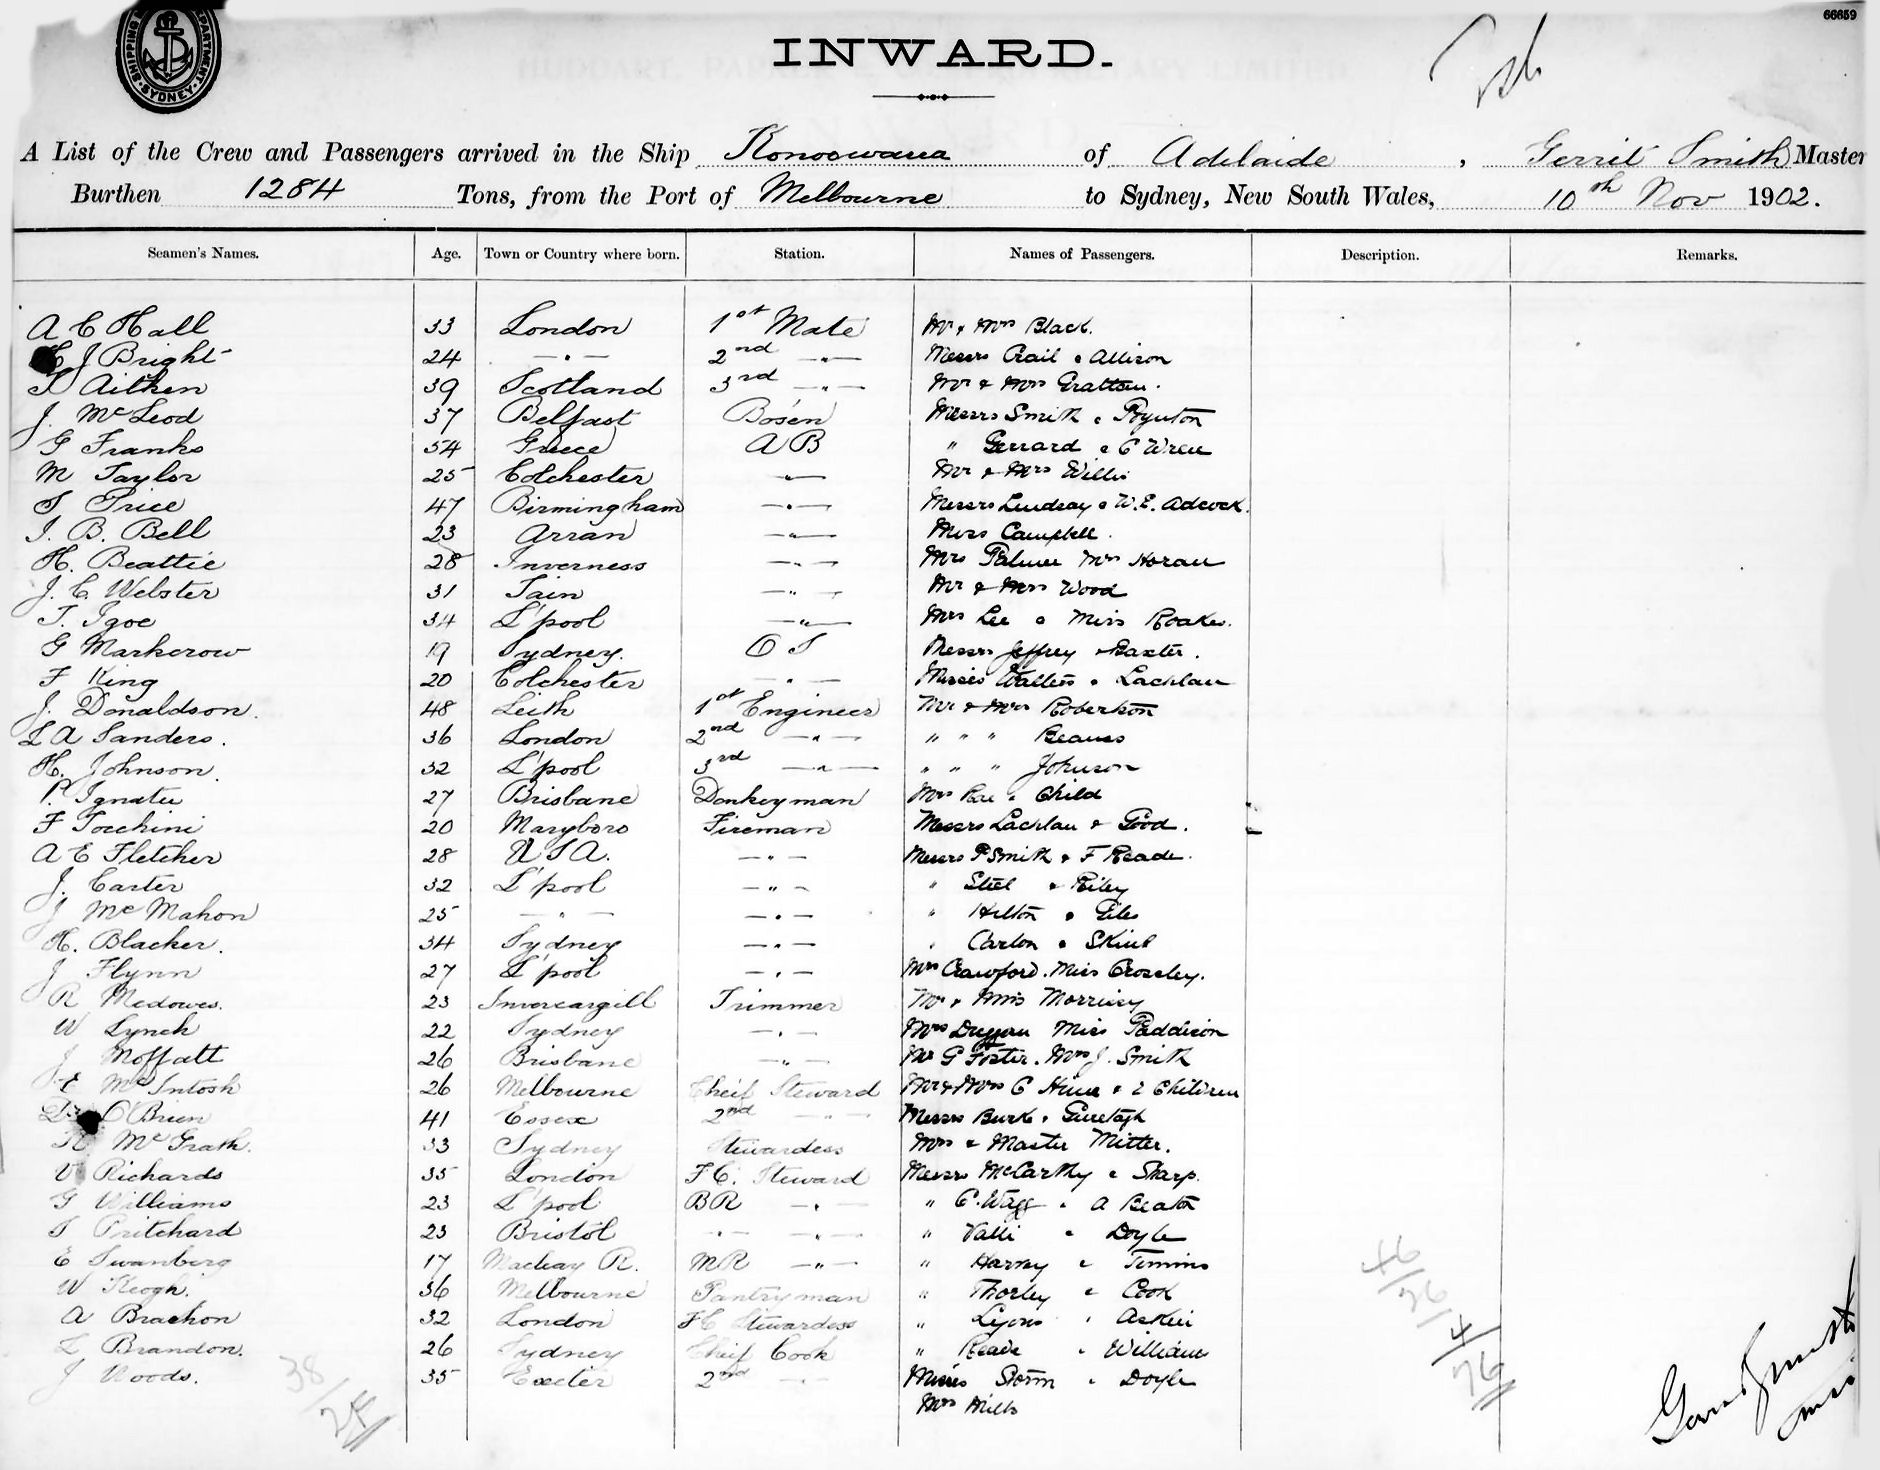 66659
SHIPPING DEPARTMENT SYDNEY
INWARD.
A List of the Crew and Passengers arrived in the Ship Konoowarra of Adelaide, Gerrit Smith Master
Burthen 1284 Tons, from the Port of Melbourne to Sydney, New South Wales, 10th Nov 1902.
Seamen's Names. Age. Town or Country where born. Station. Names of Passengers. Description. Remarks.
A E Hall 33 London 1st Mate Mr & Mrs Black.
J Bright 24 — " — 2nd — " — Messrs Crail & Allison
Aitken 39 Scotland 3rd — " — Mr & Mrs Grattan.
J. McLeod 37 Belfast Bosen Messrs Smith & Poynton
G Franks 54 Greece A B " Gerrard & C Wren
M Taylor 25 Colchester — " — Mr & Mrs Willis
S Price 47 Birmingham — " — Messrs Lindsay & W. E. Adcock.
J. B. Bell 23 Arran — " — Miss Campbell.
H. Beattie 28 Inverness — " — Mrs Palmer Mrs Horan
J. C. Webster 31 Tain — " — Mr & Mrs Wood
T. Igoe 34 L'pool — " — Mrs Lee & Miss Roakes.
G Markcrow 19 Sydney. O S Messrs Jeffrey & Baxter.
F King 20 Colchester — " — Misses Walters & Lachlan
J. Donaldson. 48 Leith 1st Engineer Mr & Mrs Robertson
L A Sanders. 36 London 2nd — " — " " " Beames
H. Johnson. 32 L'pool 3rd — " — " " " Johnson
P. 27 Brisbane Donkeyman Mrs Rae & Child
F Tocchini 20 Maryboro Fireman Messrs Lachlan & Good.
A E Fletcher 28 U S A. — " — Messrs P Smith & F Reade.
J. Carter 32 L'pool — " — " Steel & Riley
J McMahon 25 — " — — " — " Hilton & Giles
H. Blacker. 34 Sydney — " — " Carlon &
J Flynn 27 L'pool — " — Mrs Crawford. Miss Crossley.
R Medowes. 23 Invercargill Trimmer Mr & Mrs Morrisey
W Lynch 22 Sydney — " — Mrs Duggan Miss Paddison
J Moffatt 26 Brisbane — " — Mr G Foster. Mrs J. Smith
E McIntosh 26 Melbourne Cheif Steward Mr & Mrs C & 2 Children
O'Brien 41 Essex 2nd — " — Messrs Burk &
McGrath. 33 Sydney Stewardess Mrs & Master Mitter.
V Richards 35 London F.C. Steward Messrs McCarthy & Sharp.
G Williams 23 L'pool BR — " — " C. Wagg & A Beaton
S Pritchard 23 Bristol — " — " Valli & Doyle
E Swanberg 17 Macleay R. MR — " — " Harvey & Timmins
W Keogh. 36 Melbourne Pantryman " Thorley & Cook
A Brachon 32 London FC Stewardess " Lyons & Askin
L Brandon. 26 Sydney Chief Cook " Reade & Williams
J Woods. 35 Exeter 2nd — " — Misses Storm & Doyle
Mrs Mills
38
46
76
4
76